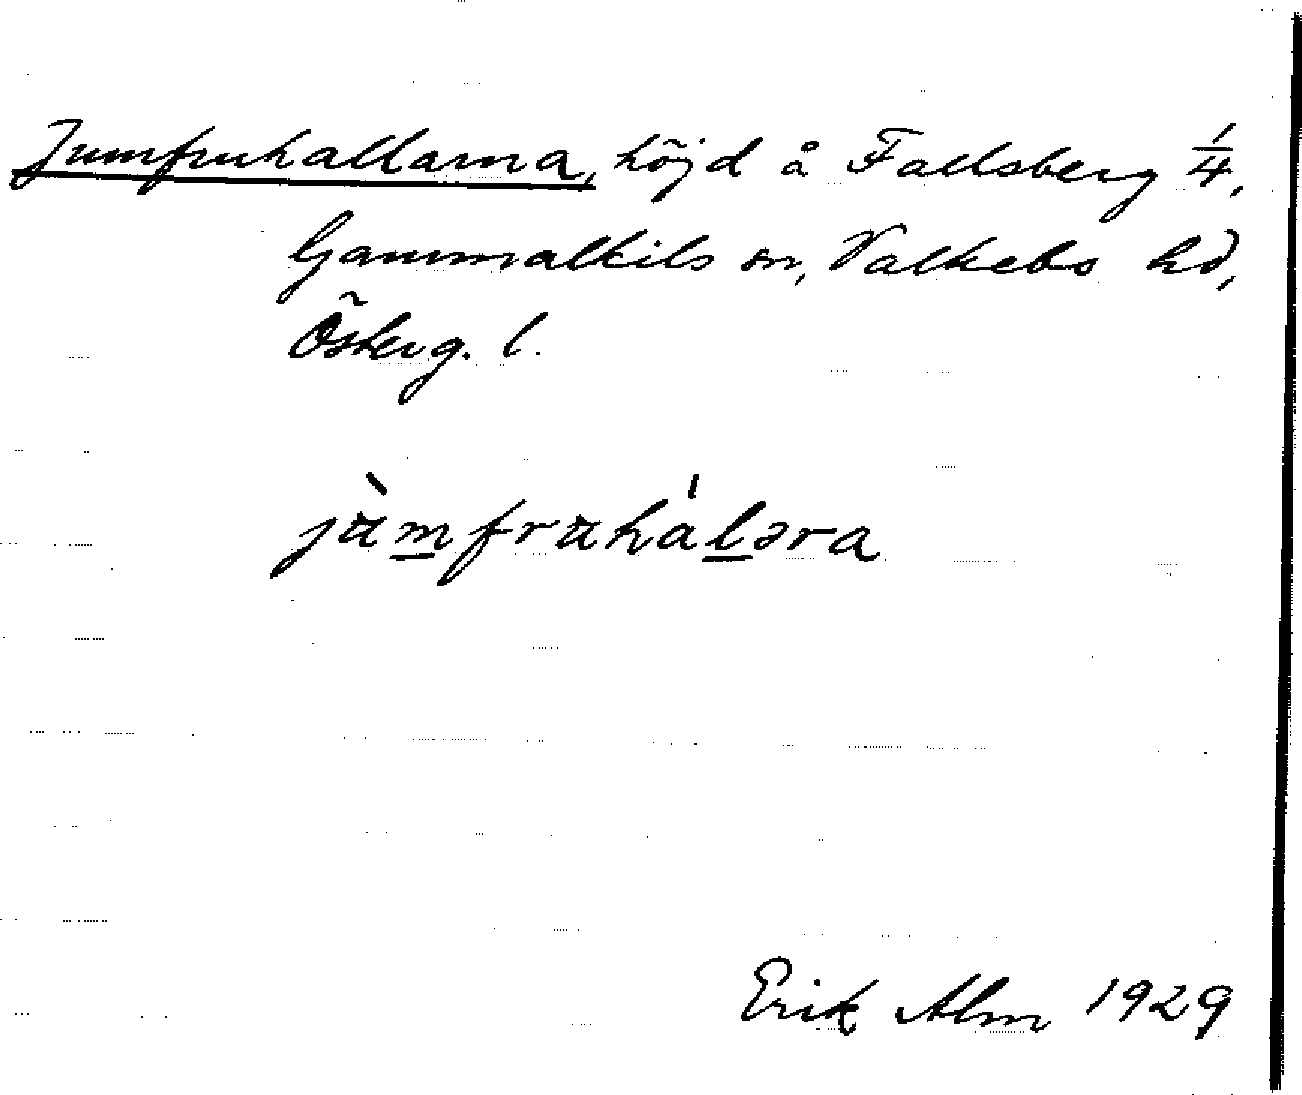 Jumfruhallarna, höjd å Fallsberg 1/4,
Gammalkils sn, Valkebo hd,
Österg. l.
jʉ̀m̲frʉhál̲əra
Erik Alm 1929